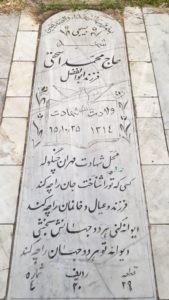 حاج محمد اخنی
فرزند ابوالفضل
ولادت شهادت
۱۳۱۴ ۶۵/۱۰/۲۵
محل شهادت مهران
کسی که تو را شناخت جان را چه کند
فرزند و عیال و خانمان را چه کند
دیوانه کنی هر دو جهانش بخشی
دیوانه تو هر دو جهان را چه کند
قطعه ردیف شماره